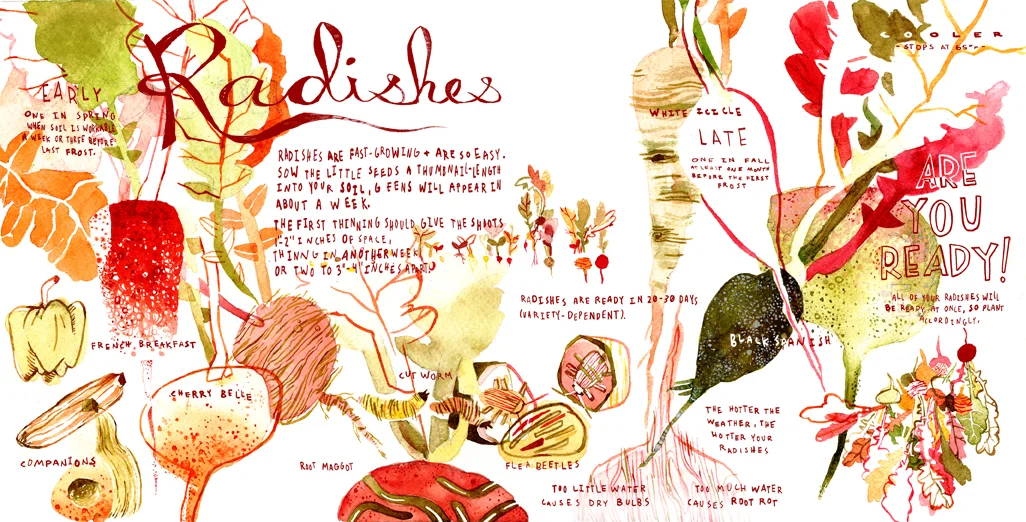 Radishes
EARLY
ONE IN SPRING
WHEN SOIL IS WORKABLE
A WEEK OR THREE BEFORE
LAST FROST.
RADISHES ARE FAST-GROWING + ARE SO EASY.
SOW THE LITTLE SEEDS A THUMBNAIL-LENGTH
INTO YOUR SOIL, G EENS WILL APPEAR IN
ABOUT A WEEK.
THE FIRST THINNING SHOULD GIVE THE SHOOTS
1"-2" INCHES OF SPACE,
THINNG IN ANOTHER WEEK
OR TWO TO 3"-4" INCHES APART.
RADISHES ARE READY IN 20-30 DAYS
(VARIETY-DEPENDENT).
FRENCH BREAKFAST
CHERRY BELLE
COMPANIONS
ROOT MAGGOT
CUT WORM
FLEA BEETLES
WHITE ICICLE
LATE
ONE IN FALL
AT LEAST ONE MONTH
BEFORE THE FIRST
FROST
BLACK SPANISH
THE HOTTER THE
WEATHER, THE
HOTTER YOUR
RADISHES
TOO LITTLE WATER
CAUSES DRY BULBS
TOO MUCH WATER
CAUSES ROOT ROT
COOLER
-STOPS AT 65°F-
ARE
YOU
READY!
ALL OF YOUR RADISHES WILL
BE READY AT ONCE, SO PLANT
ACCORDINGLY.